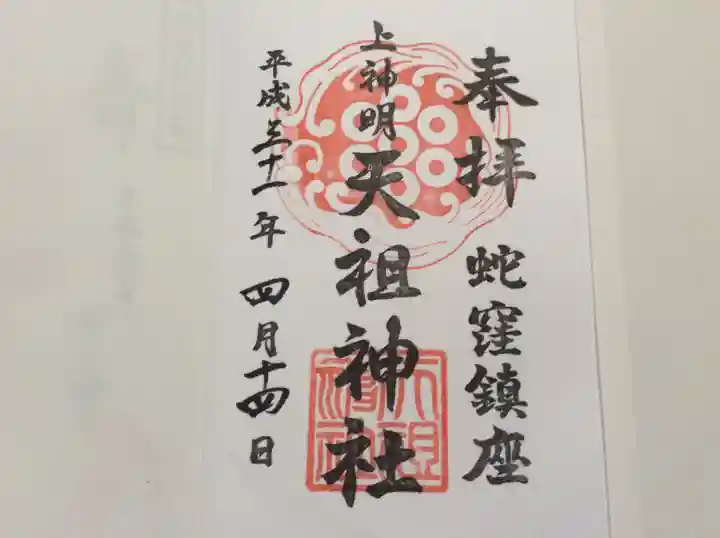 奉拝
蛇窪鎮座
上神明
天祖神社
平成三十一年
四月十四日
天祖神社